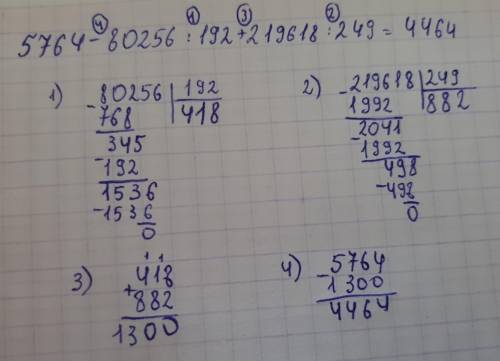 ④ ① ③ ②
5764 - 80256 : 192 + 219618 : 249 = 4464
1) 80256 | 192
- 768 | 418
345
- 192
1536
- 1536
0
2) - 219618 | 249
1992 | 882
2041
- 1992
498
- 498
0
3) 1 1
418
+ 882
1300
4) 5764
- 1300
4464